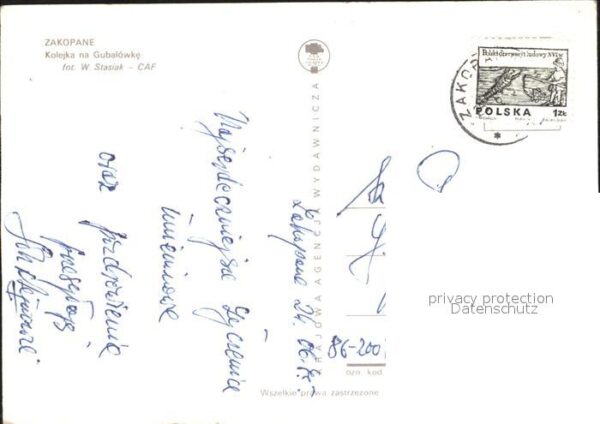 ZAKOPANE
Kolejka na Gubałówkę
fot. W. Stasiak – CAF
KRAJOWA AGENCJA WYDAWNICZA
Zakopane 24.06.
Najserdeczniejsze życzenia
imieninowe
oraz pozdrowienia
przesyłają
ZAKOP
POLSKA 1ZŁ
86-200
ozn. kod
Wszelkie prawa zastrzeżone
privacy protection
Datenschutz